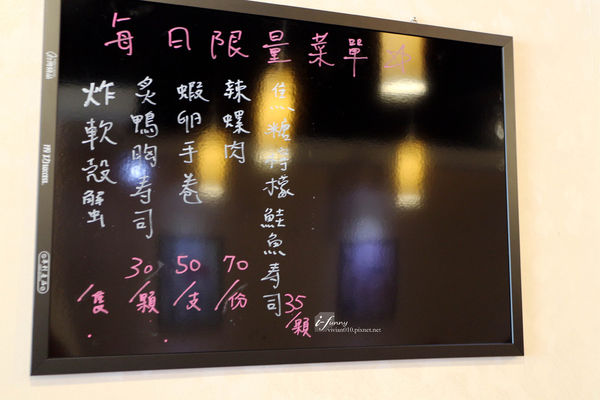 每日限量菜單
焦糖檸檬鮭魚壽司 35/顆
辣螺肉 70/份
蝦卵手卷 50/支
炙鴨胸壽司 30/顆
炸軟殼蟹 /隻
i-funny
vivian010.pixnet.net